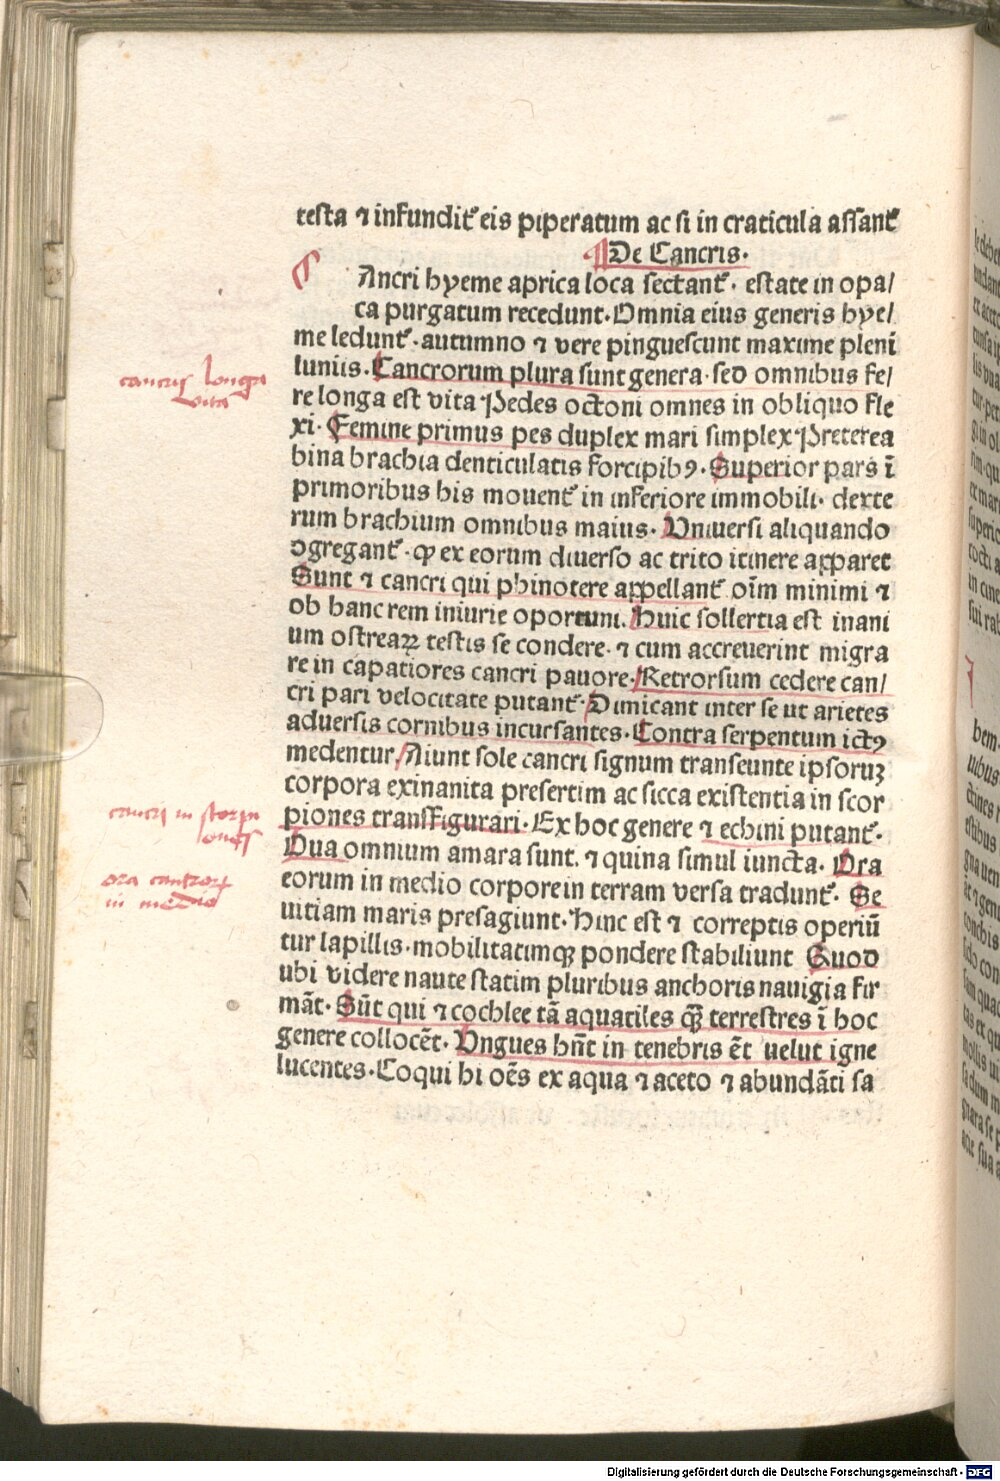 testa ⁊ infundit᷑ eis piperatum ac si in craticula assant᷑
De Cancris.
Ancri hyeme aprica loca sectant᷑. estate in opa/
ca purgatum recedunt. Omnia eius generis hye/
me ledunt᷑. autumno ⁊ vere pinguescunt maxime pleni
luniis. Cancrorum plura sunt genera. sed omnibus fe/
re longa est vita Pedes octoni omnes in obliquo fle
xi. Femine primus pes duplex mari simplex Preterea
bina brachia denticulatis forcipibꝰ. Superior pars ī
primoribus his mouent᷑ in inferiore immobili. dexte
rum brachium omnibus maius. Vniuersi aliquando
ꝯgregant᷑. ꝙ ex eorum diuerso ac trito itinere apparet
Sunt ⁊ cancri qui phinotere appellant᷑ oīm minimi ⁊
ob hanc rem iniurie oportuni. Huic sollertia est inani
um ostreaꝝ testis se condere. ⁊ cum accreuerint migra
re in capatiores cancri pauore. Retrorsum cedere can/
cri pari velocitate putant᷑. Dimicant inter se ut arietes
aduersis cornibus incursantes. Contra serpentum ictꝰ
medentur Aiunt sole cancri signum transeunte ipsoruꝫ
corpora exinanita presertim ac sicca existentia in scor
piones transffigurari. Ex hoc genere ⁊ echini putant᷑.
Oua omnium amara sunt. ⁊ quina simul iuncta. Ora
eorum in medio corpore in terram versa tradunt᷑. Se
uitiam maris presagiunt. Hinc est ⁊ correptis operiū
tur lapillis. mobilitatimqꝫ pondere stabiliunt Quod
ubi videre naute statim pluribus anchoris nauigia fir
māt. Sūt qui ⁊ cochlee tā aquatiles qꝫ̄ terrestres ī hoc
genere collocēt. Vngues hn̄t in tenebris ēt velut igne
lucentes. Coqui hi oēs ex aqua ⁊ aceto ⁊ abundāti sa
cancris longa
vita
cancri in scorpi
ones
ora cancrorꝫ
in medio
Digitalisierung gefördert durch die Deutsche Forschungsgemeinschaft - DFG